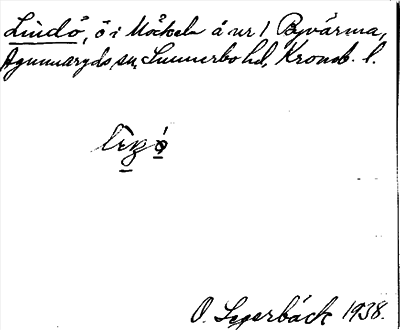 Lindö, ö i Möckeln å nr 1 Byvärma,
Agunnaryds sn, Sunnerbo hd, Kronob. l.
O. Segerbäck 1938.